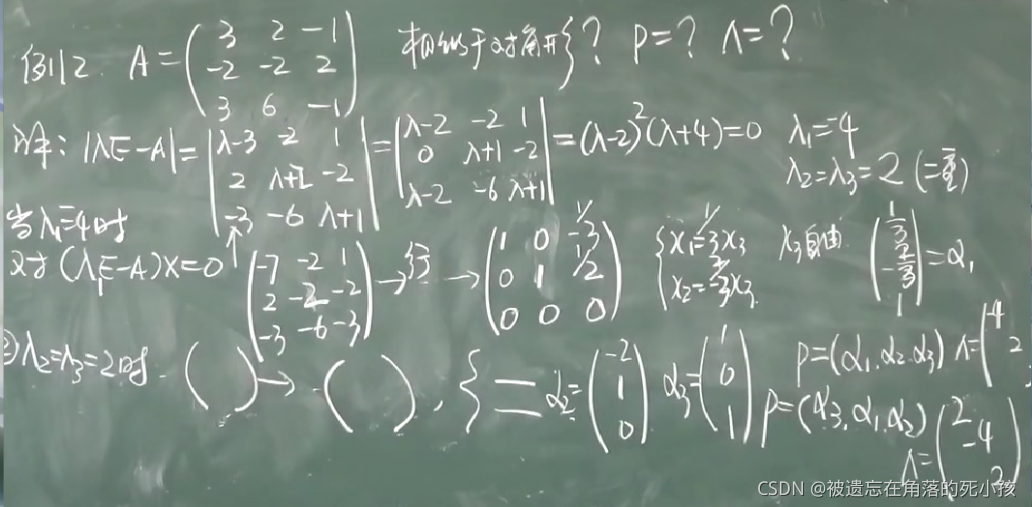 例12. A=(3 2 -1; -2 -2 2; 3 6 -1) 相似于对角阵? P=? Λ=?
解: |λE-A|=|λ-3 -2 1; 2 λ+2 -2; -3 -6 λ+1|=|λ-2 -2 1; 0 λ+1 -2; λ-2 -6 λ+1|=(λ-2)²(λ+4)=0 λ₁=-4
λ₂=λ₃=2(二重)
当λ₁=-4时
对(λ₁E-A)X=0 (-7 -2 1; 2 -2 -2; -3 -6 -3)→行→(1 0 -1/3; 0 1 1/2; 0 0 0) {x₁=1/3x₃ x₃自由 (1/3; -2/3; 1)=α₁
②λ₂=λ₃=2时. ( )→( ), { = α₂=(-2; 1; 0) α₃=(1; 0; 1)
P=(α₁,α₂,α₃) Λ=(-4 2
P=(α₃,α₁,α₂)
Λ=(2 -4 2)
CSDN @被遗忘在角落的死小孩